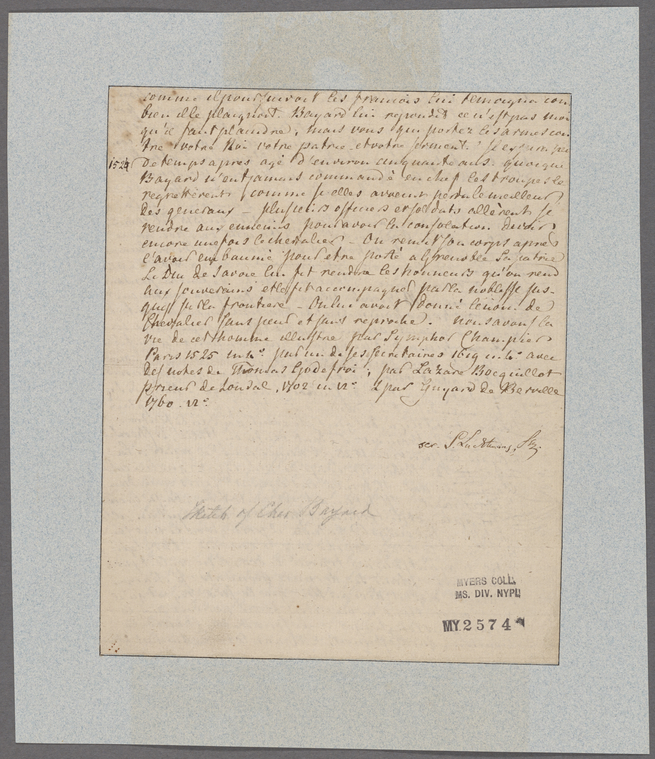 comme il poursuivoit les francois lui temoigna com
bien il le plaignoit. Bayard lui repondit ce n'est pas moi
qu'il faut plaindre, mais vous qui portez les armes con
tre votre Roi votre patrie et votre serment.
1524 de temps apres agé d'environ cinquante ans. quoique
Bayard n'eut jamais commandé en chef les troupes le
regretterent comme si elles avoient perdu le meilleur
des generaux - plusieurs officiers et soldats allerent se
rendre aux ennemis pour avoir la consolation de voir
encore une fois le chevalier - On remit son corps apres
l'avoir embaumé pour etre porté a Grenoble sa patrie
Le Duc de Savoie lui fit rendre les honneurs qu'on rend
aux souverains et le fit accompagner par la noblesse jus-
qu'à la frontiere - On lui avoit donné le nom de
Chevalier sans peur et sans reproche. Nous avons la
vie de cet homme illustre par Symphor Champier
Paris 1525 in 4°. par un de ses secretaires 1619 in 4°. avec
des notes de Thomas Godefroi, par Lazare Bocquillot
prieur de Louval, 1702 in 12°. & par Guyard de Berville
1760. 12°.
Sketch of Chev Bayard
MYERS COLL.
MS. DIV. NYPL
MY 2574